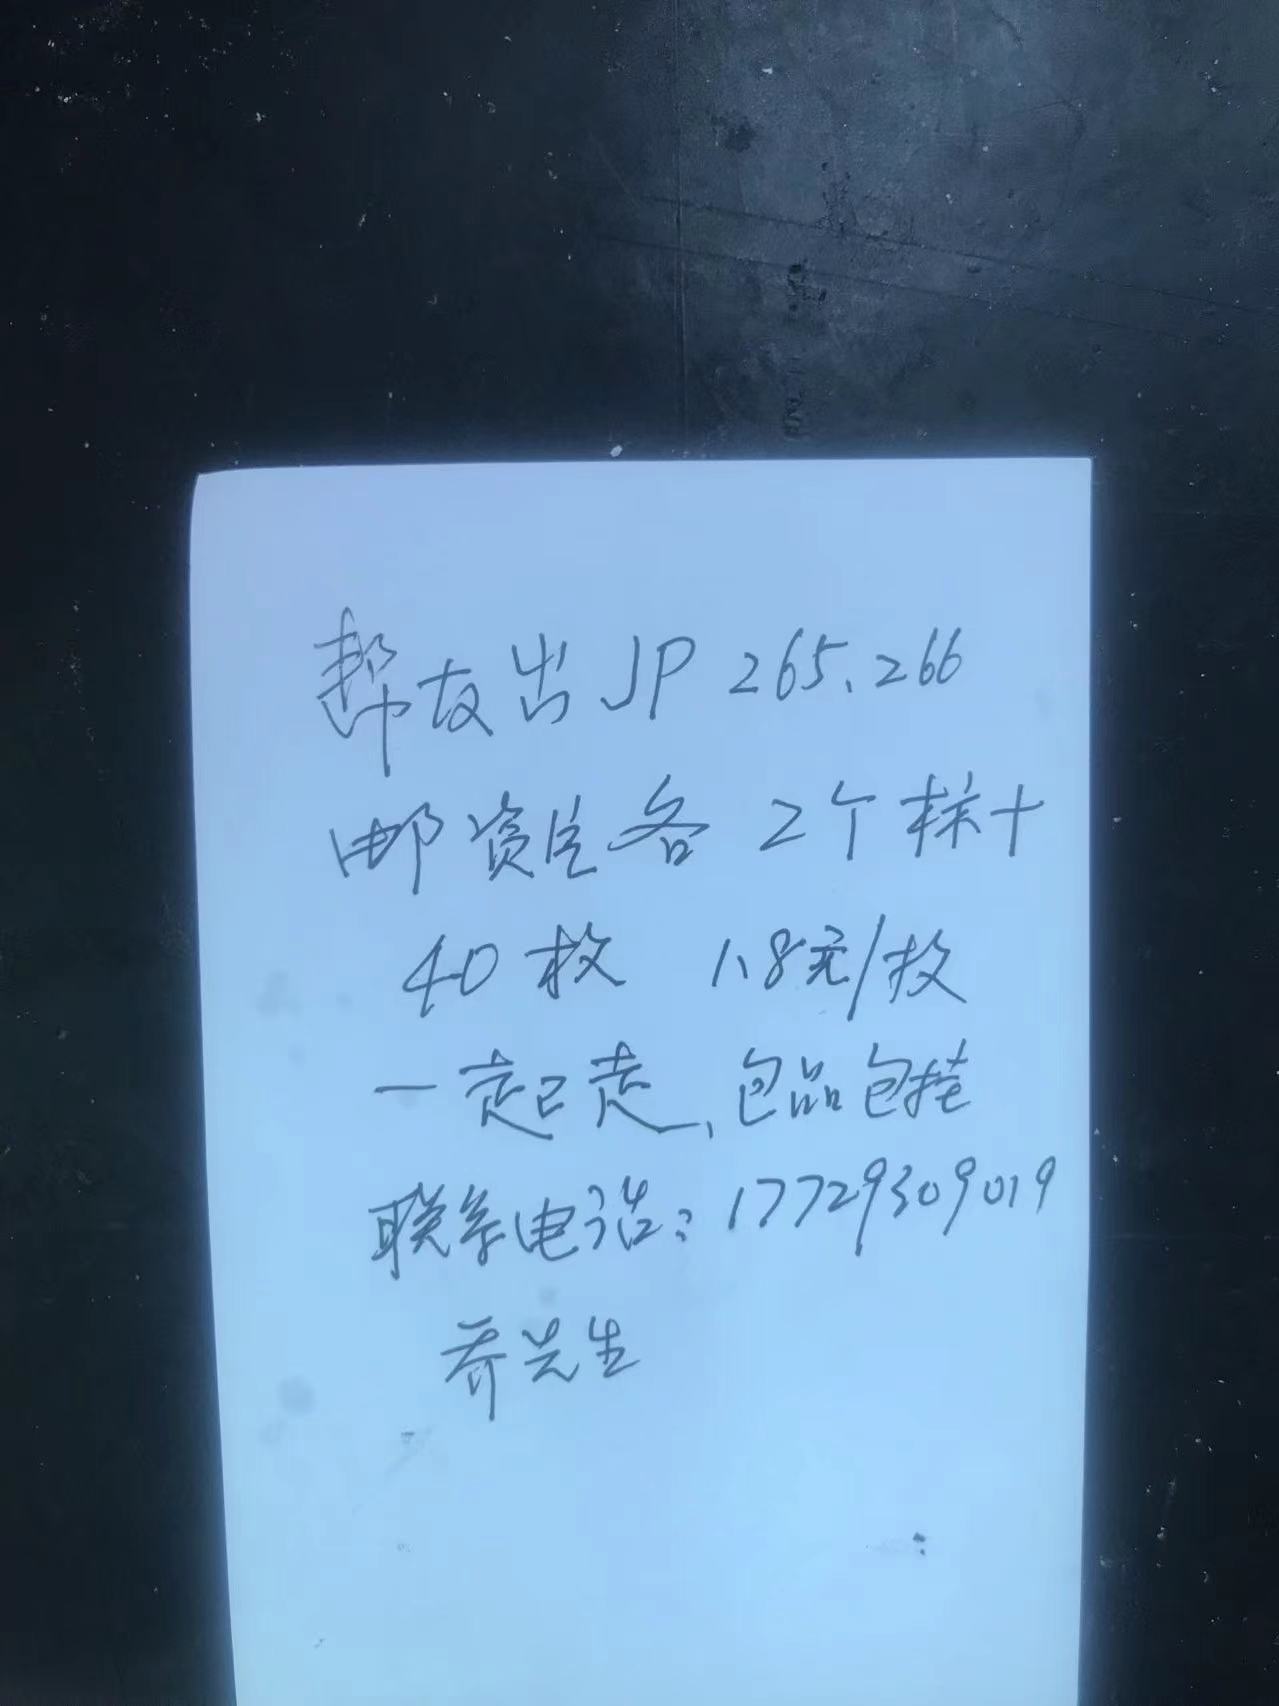 帮友出JP265、266
邮资片各2个标十
40枚 1.8元/枚
一起走、包品包挂
联系电话:17729309019
乔先生